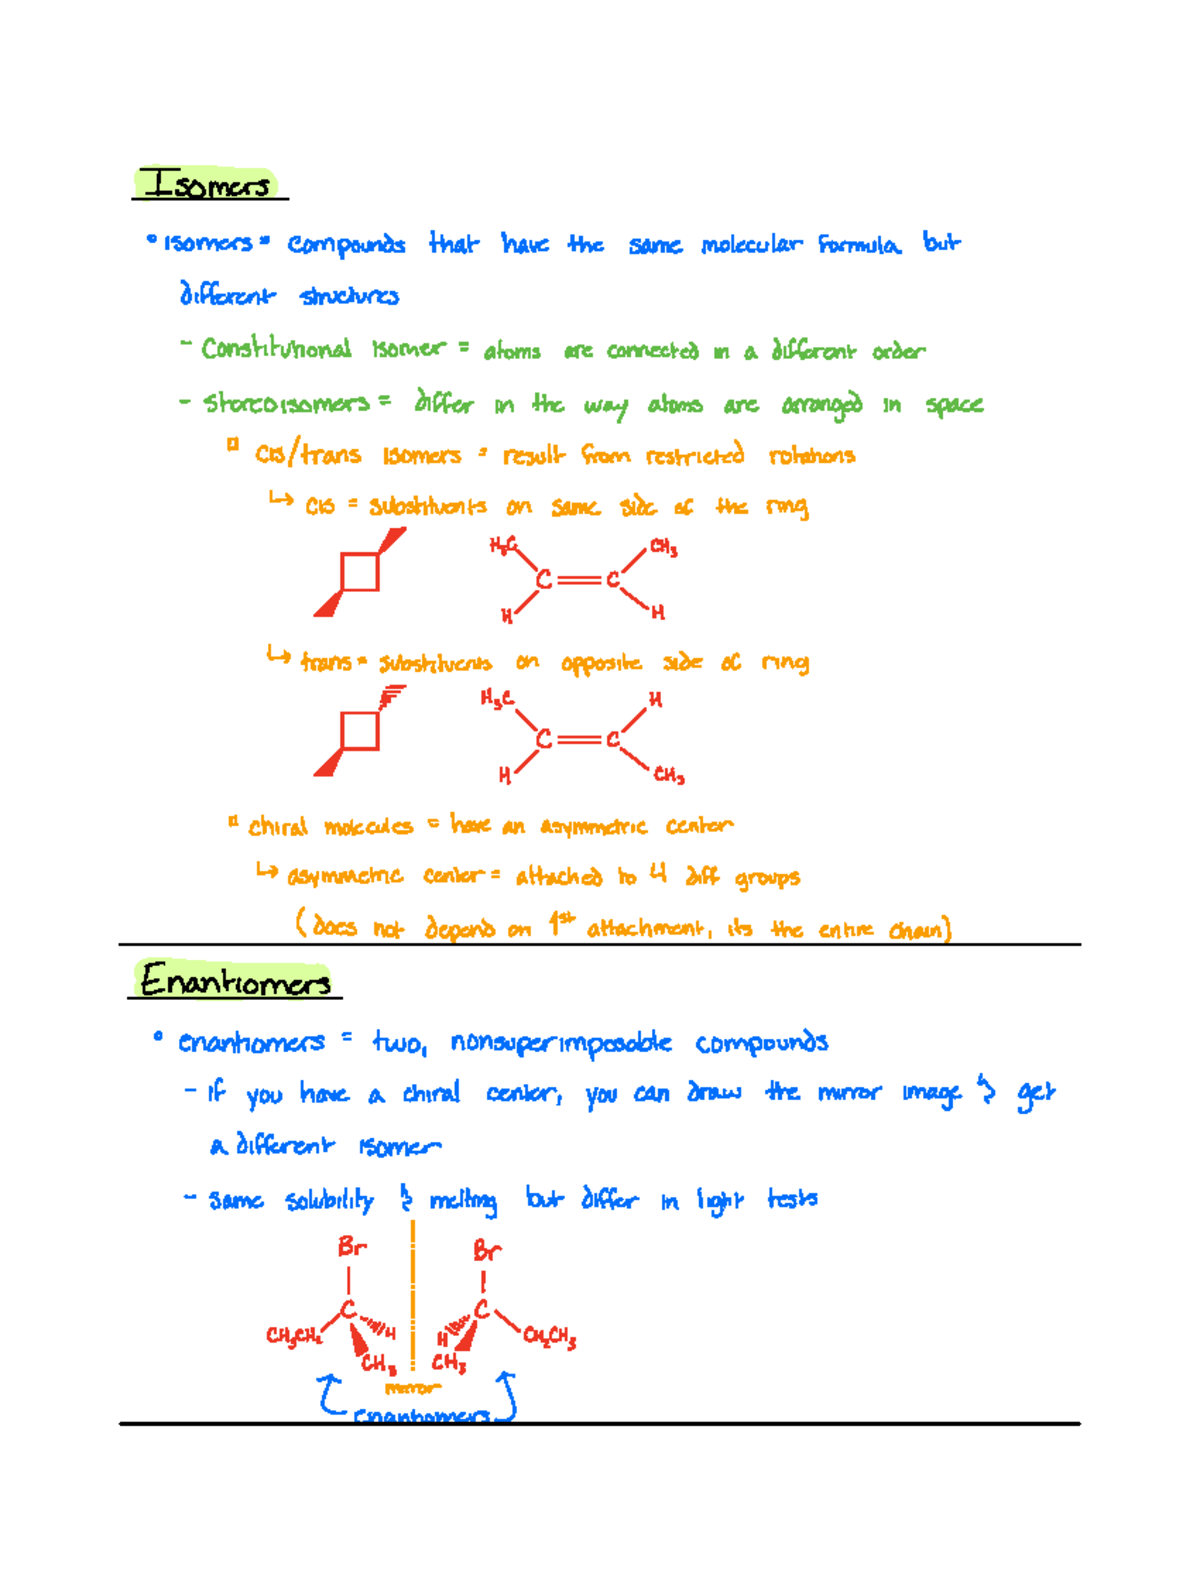 Isomers
• isomers = compounds that have the same molecular formula but
different structures
- Constitutional isomer = atoms are connected in a different order
- Stereoisomers = differ in the way atoms are arranged in space
▫ cis/trans isomers = result from restricted rotations
↳ cis = substituents on same side of the ring
H₃C CH₃
C C
H H
↳ trans = substituents on opposite side of ring
H₃C H
C C
H CH₃
▫ chiral molecules = have an asymmetric center
↳ asymmetric center = attached to 4 diff groups
(does not depend on 1st attachment, its the entire chain)
Enantiomers
• enantiomers = two, nonsuperimposable compounds
- if you have a chiral center, you can draw the mirror image & get
a different isomer
- same solubility & melting but differ in light tests
Br Br
C C
CH₃CH₂ H H CH₂CH₃
CH₃ CH₃
mirror
enantiomers